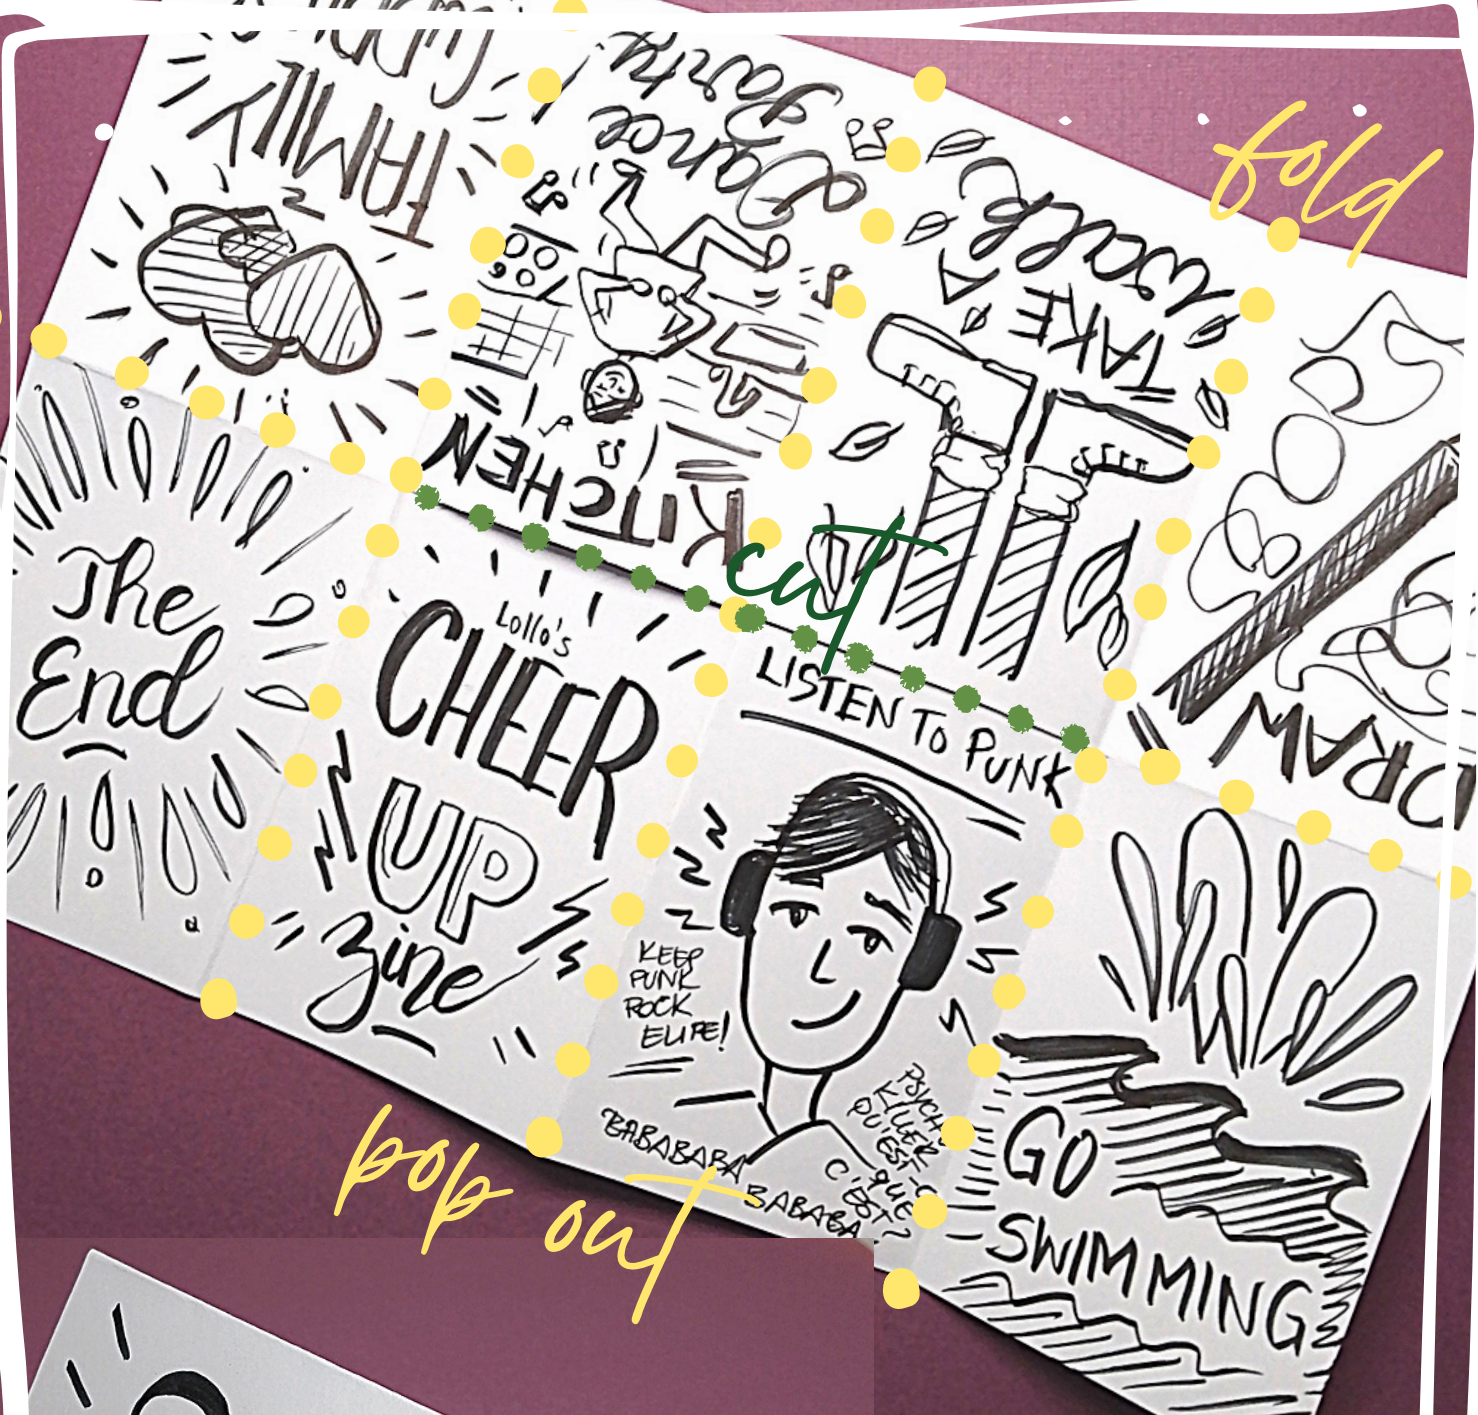 fold
FAMILY
Dance
Party!
KITCHEN
TAKE A
Walk
DRAW
cut
The
End
Lollo's
CHEER
UP
Zine
LISTEN TO PUNK
KEEP
PUNK
ROCK
ELITE!
"BABABABA
BABABA
PSYCHO
KILLER
QU'EST-CE
QUE
C'EST?
GO
SWIMMING
pop out